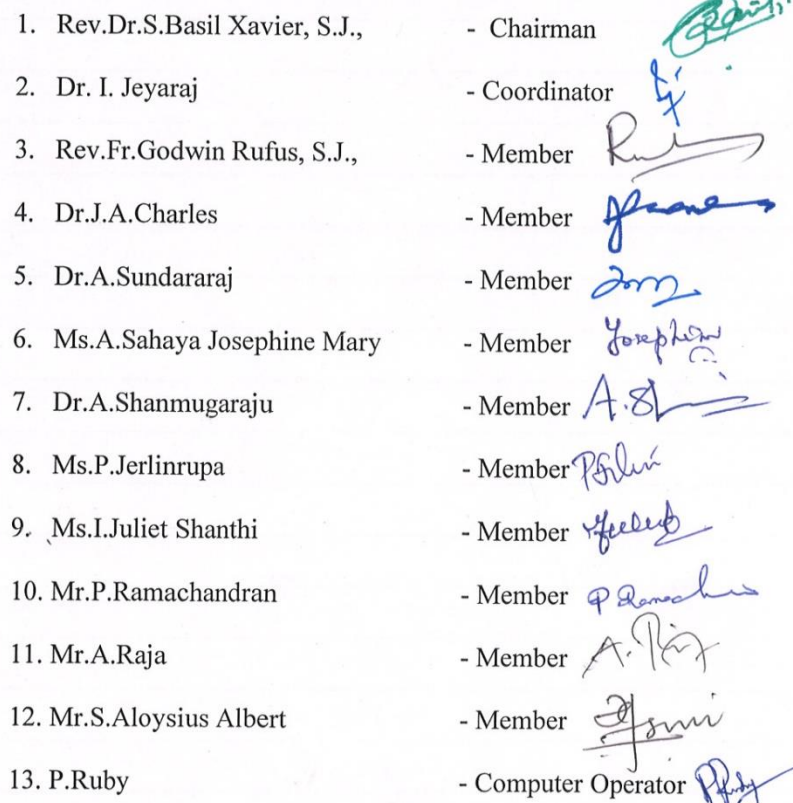 1. Rev.Dr.S.Basil Xavier, S.J., - Chairman
2. Dr. I. Jeyaraj - Coordinator
3. Rev.Fr.Godwin Rufus, S.J., - Member
4. Dr.J.A.Charles - Member
5. Dr.A.Sundararaj - Member
6. Ms.A.Sahaya Josephine Mary - Member Josephine
7. Dr.A.Shanmugaraju - Member
8. Ms.P.Jerlinrupa - Member
9. Ms.I.Juliet Shanthi - Member
10. Mr.P.Ramachandran - Member
11. Mr.A.Raja - Member
12. Mr.S.Aloysius Albert - Member
13. P.Ruby - Computer Operator P.Ruby